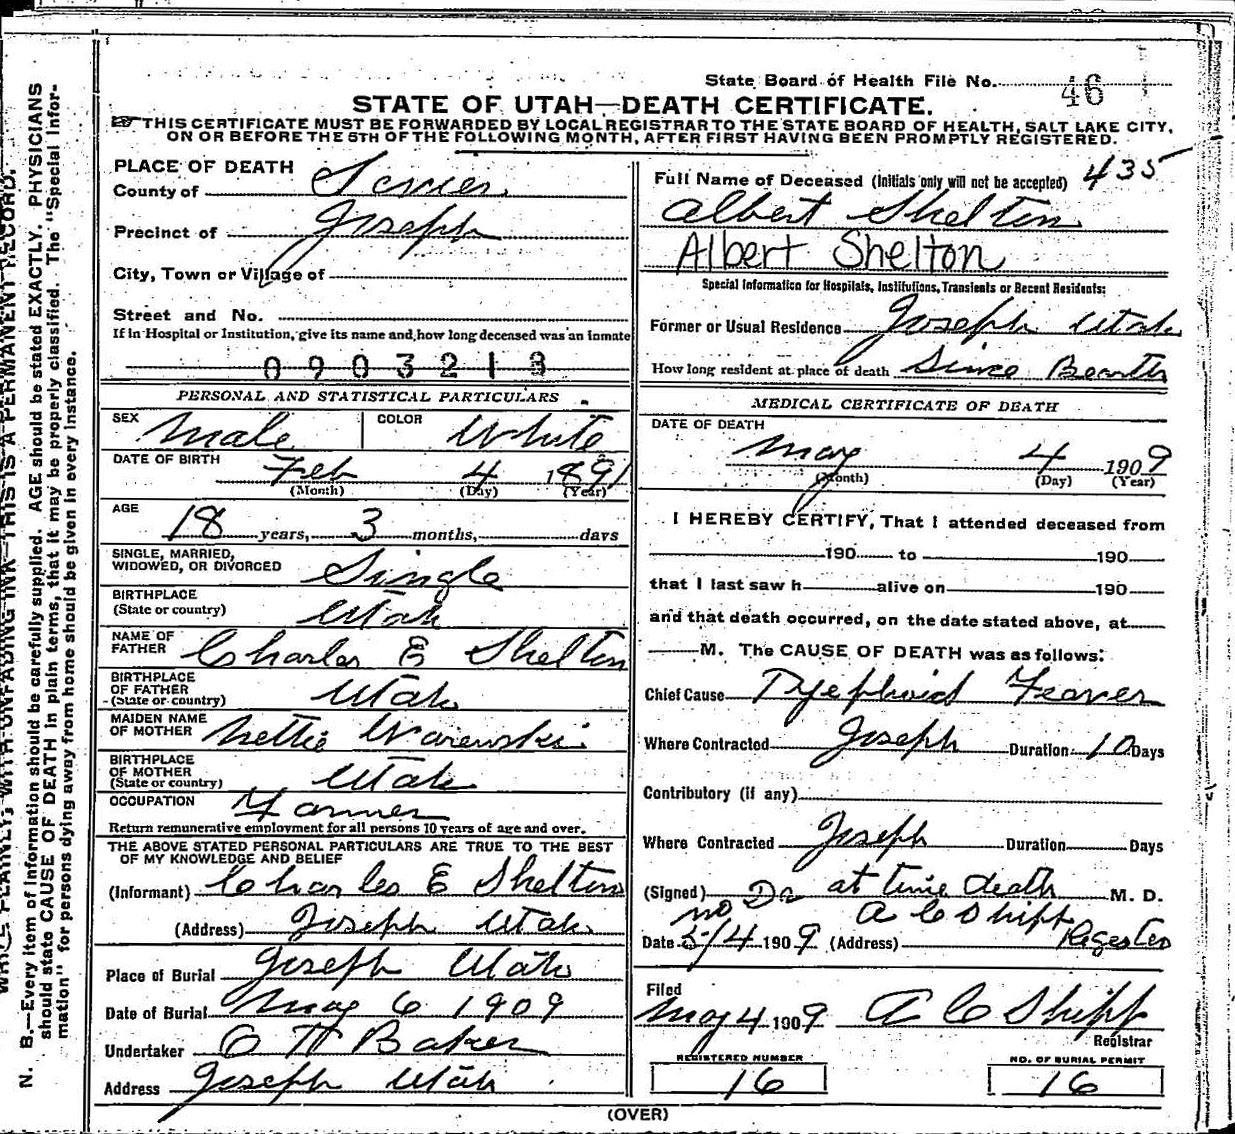 State Board of Health File No. 46
STATE OF UTAH—DEATH CERTIFICATE.
THIS CERTIFICATE MUST BE FORWARDED BY LOCAL REGISTRAR TO THE STATE BOARD OF HEALTH, SALT LAKE CITY,
ON OR BEFORE THE 5TH OF THE FOLLOWING MONTH, AFTER FIRST HAVING BEEN PROMPTLY REGISTERED.
PLACE OF DEATH
County of Sevier
Precinct of Joseph
City, Town or Village of
Street and No.
If in Hospital or Institution, give its name and how long deceased was an inmate
0903213
PERSONAL AND STATISTICAL PARTICULARS
SEX Male COLOR White
DATE OF BIRTH Feb 4 1891
(Month) (Day) (Year)
AGE
18 years, 3 months, days
SINGLE, MARRIED,
WIDOWED, OR DIVORCED Single
BIRTHPLACE
(State or country) Utah
NAME OF
FATHER Charles E Shelton
BIRTHPLACE
OF FATHER
(State or country) Utah
MAIDEN NAME
OF MOTHER Nettie Warenski
BIRTHPLACE
OF MOTHER
(State or country) Utah
OCCUPATION Farmer
Return remunerative employment for all persons 10 years of age and over.
THE ABOVE STATED PERSONAL PARTICULARS ARE TRUE TO THE BEST
OF MY KNOWLEDGE AND BELIEF
(Informant) Charles E Shelton
(Address) Joseph Utah
Place of Burial Joseph Utah
Date of Burial May 6 1909
Undertaker O H Baker
Address Joseph Utah
Full Name of Deceased (Initials only will not be accepted) 435
Albert Shelton
Albert Shelton
Special Information for Hospitals, Institutions, Transients or Recent Residents:
Former or Usual Residence Joseph Utah
How long resident at place of death Since Bearth
MEDICAL CERTIFICATE OF DEATH
DATE OF DEATH
May 4 1909
(Month) (Day) (Year)
I HEREBY CERTIFY, That I attended deceased from
190 to 190
that I last saw h alive on 190
and that death occurred, on the date stated above, at
M. The CAUSE OF DEATH was as follows:
Chief Cause Tyephoid Feaver
Where Contracted Joseph Duration 10 Days
Contributory (if any)
Where Contracted Joseph Duration Days
(Signed) no Dr at time death M. D.
A C Shipp
Date 5/4 1909 (Address) Regester
Filed
May 4 1909 A C Shipp
Registrar
REGISTERED NUMBER
16
NO. OF BURIAL PERMIT
16
(OVER)
WRITE PLAINLY, WITH UNFADING INK—THIS IS A PERMANENT RECORD.
N. B.—Every item of information should be carefully supplied. AGE should be stated EXACTLY. PHYSICIANS
should state CAUSE OF DEATH in plain terms, that it may be properly classified. The "Special Infor-
mation" for persons dying away from home should be given in every instance.